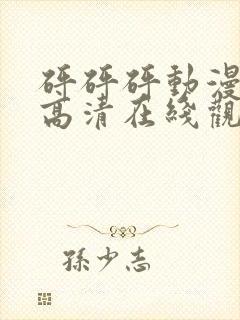 砰砰砰動漫
高清在綫觀
孫少志